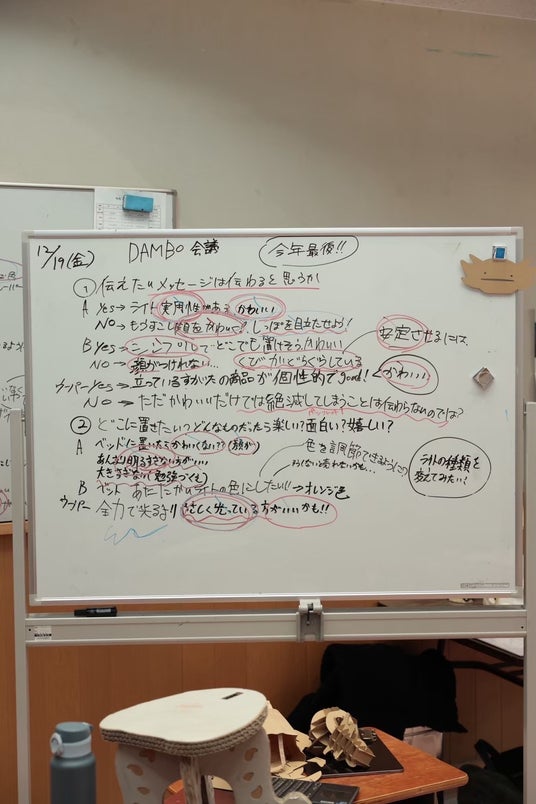 12/19(金) DAMBO 会議 今年最後!!
① 伝えたいメッセージは伝わると思うか
A Yes→ライト 実用性がある かわいい
NO→もうすこし顔をかわいく? しっぽを目立たせよう!
B Yes→シンプルで…どこでも置けそう、かわいい 安定させるには、
NO→顔がつけれない… くびがぐらぐらしている
ウーパー Yes→立っているすがたの商品が個性的でgood! かわいい
NO→ただかわいいだけでは絶滅してしまうことは伝わらないのでは?
② どこに置きたい?どんなものだったら楽しい?面白い?嬉しい?
A ベッドに置いたらかわいくない??(顔が) 色を調節できるように
あんまり明るすぎない方がいい
大きすぎない(勉強づくえ)
B ベット あたたかいライトの色にしたい!!→オレンジ色
ライトの種類を変えてみたい?
ウーパー 全力で光る!! やさしく光っている方がいいかも!!